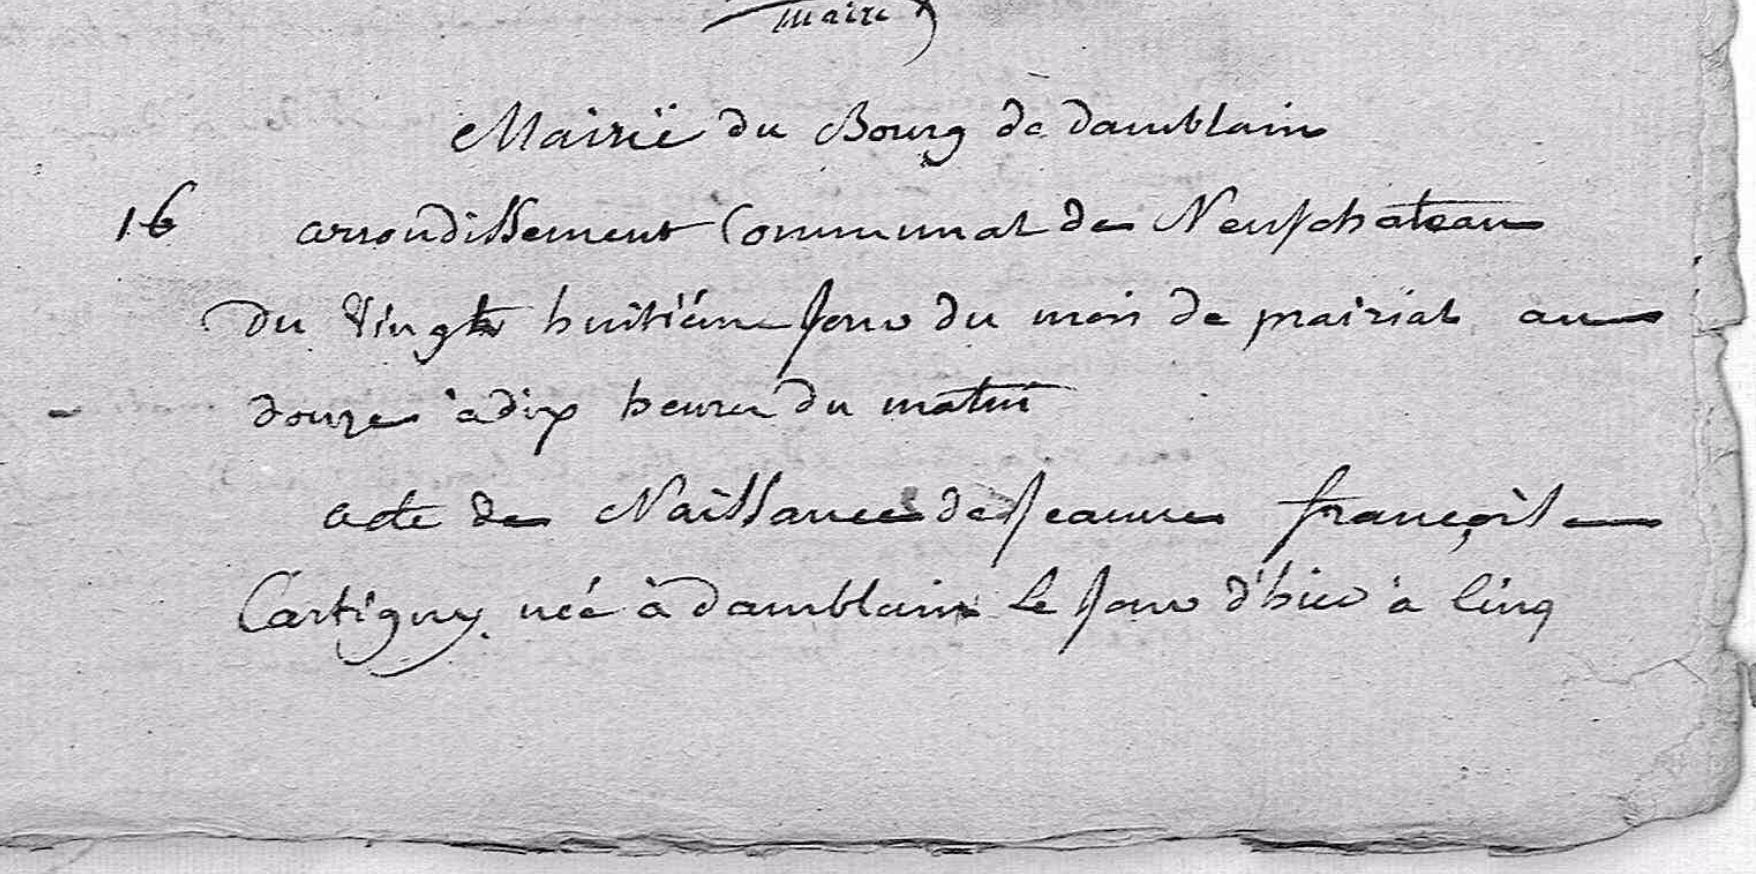 maire
Mairië du Bourg de damblain
16 arrondissement Communal de Neufchateau
du Vingt huitiéme Jour du mois de prairial an
douze à dix heures du matin
acte de Naissance de Jeanne françoise
Cartigny née à damblain Le Jour d'hier à Cinq